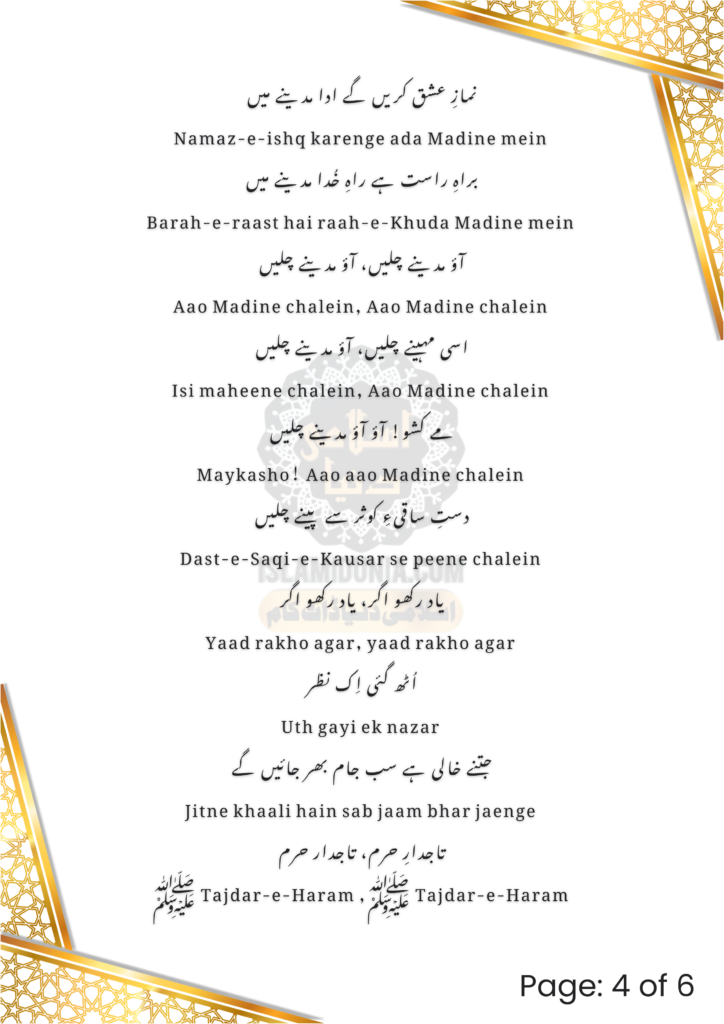 نمازِ عشق کریں گے ادا مدینے میں
Namaz-e-ishq karenge ada Madine mein
براہِ راست ہے راہِ خُدا مدینے میں
Barah-e-raast hai raah-e-Khuda Madine mein
آؤ مدینے چلیں، آؤ مدینے چلیں
Aao Madine chalein, Aao Madine chalein
اسی مہینے چلیں، آؤ مدینے چلیں
Isi maheene chalein, Aao Madine chalein
مے کشو! آؤ آؤ مدینے چلیں
Maykasho! Aao aao Madine chalein
دستِ ساقیٔ کوثر سے پینے چلیں
Dast-e-Saqi-e-Kausar se peene chalein
ISLAMIDUNIA.COM
یاد رکھو اگر، یاد رکھو اگر
اسلامی دنیا ڈاٹ کام
Yaad rakho agar, yaad rakho agar
اُٹھ گئی اِک نظر
Uth gayi ek nazar
جتنے خالی ہے سب جام بھر جائیں گے
Jitne khaali hain sab jaam bhar jaenge
تاجدارِ حرم، تاجدار حرم
ﷺ Tajdar-e-Haram , ﷺ Tajdar-e-Haram
Page: 4 of 6